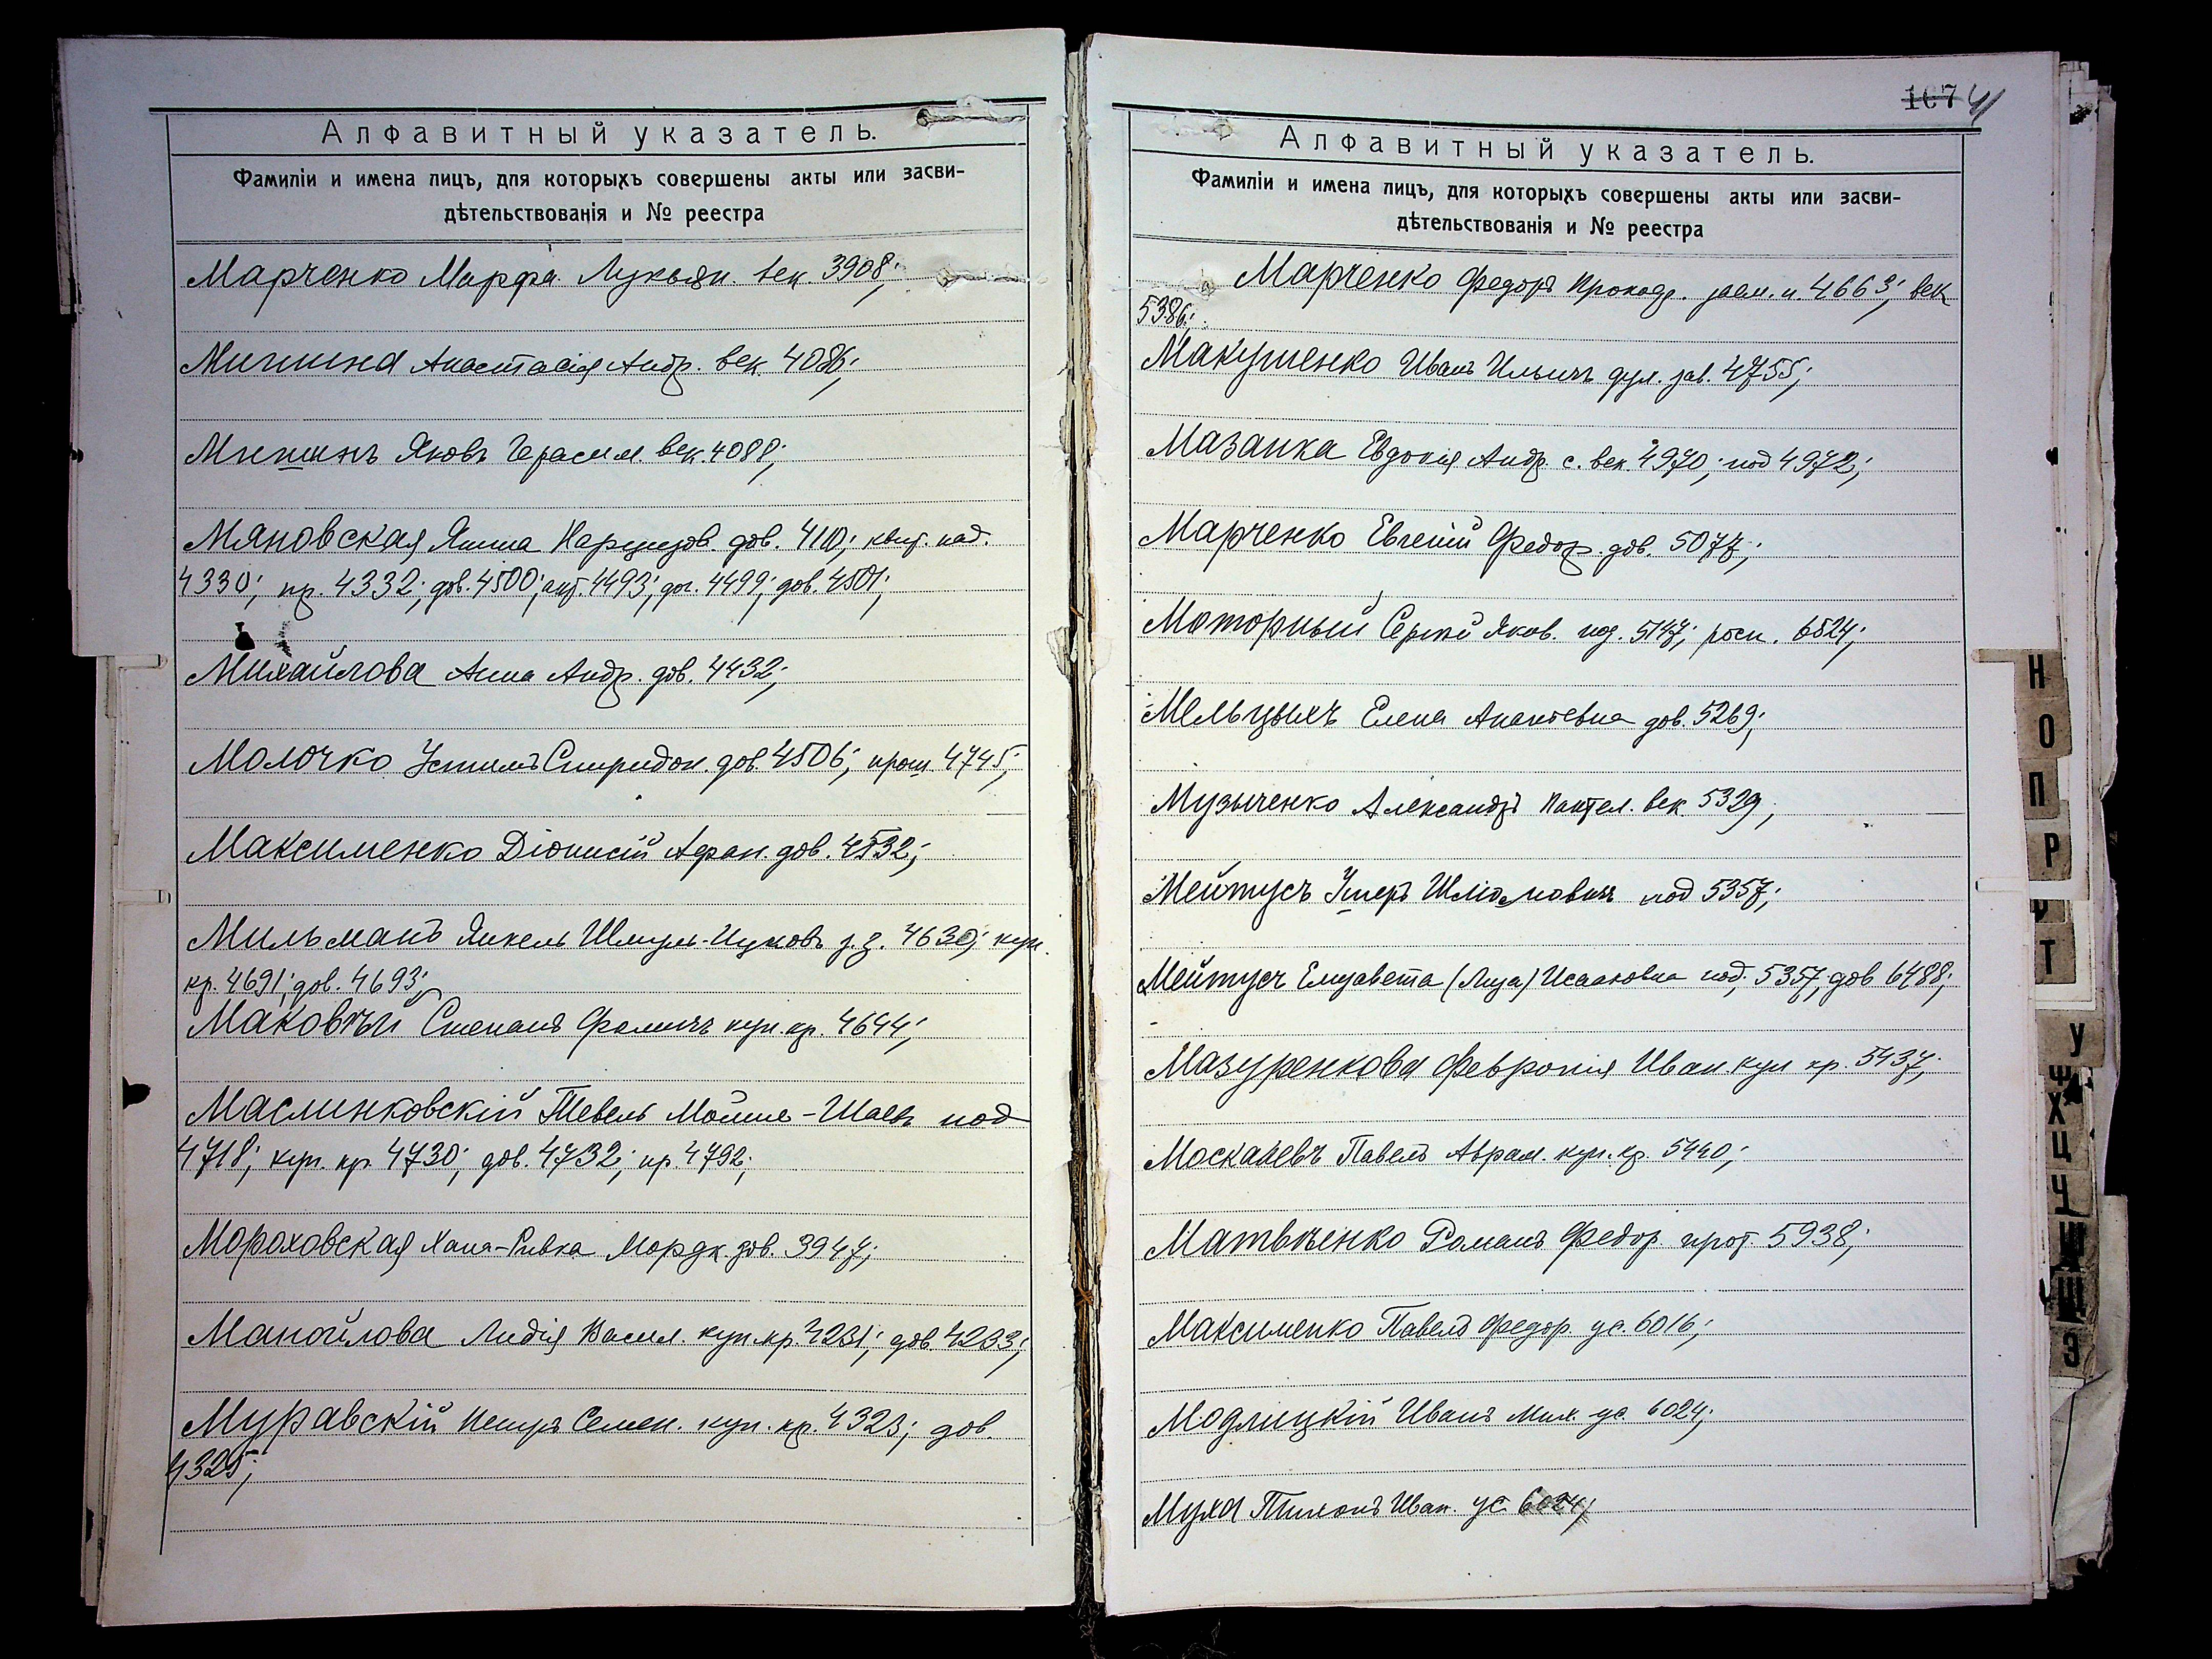 Алфавитный указатель.
Фамиліи и имена лицъ, для которыхъ совершены акты или засви-
дѣтельствованія и № реестра
Марченко Марфа Лукьян. век. 3908;
Мишина Анастасія Андр. век. 4086;
Мишинъ Яковъ Герасим. век. 4088;
Мяновская Янина Нарцизов. дов. 4110; квит. над.
4330; пр. 4332; дов. 4500; акт. 4493; дог. 4499; дов. 4501;
Михайлова Анна Андр. дов. 4432;
Молочко Устимъ Спиридон. дов. 4506; прош. 4745;
Максименко Діонисій Афан. дов. 4532;
Мильманъ Янкель Шмуль-Ицковъ з. з. 4630; куп.
кр. 4691; дов. 4693;
Маковѣй Степанъ Фомичъ куп. кр. 4644;
Маслинковскій Тевель Мошье-Шаевъ под
4718; куп. кр. 4730; дов. 4732; пр. 4792;
Мораховская Хана-Ривка Мордк. дов. 3947;
Манойлова Лидія Васил. куп. кр. 4231; дов. 4233;
Муравскій Петръ Семен. куп. кр. 4323; дов.
4325;
167 41
Алфавитный указатель.
Фамиліи и имена лицъ, для которыхъ совершены акты или засви-
дѣтельствованія и № реестра
Марченко Федоръ Прокоф. заем. п. 4663; век
5386;
Макушенко Иванъ Ильичъ дух. зав. 4755;
Мазанка Евдокія Андр. с. век. 4970; под 4972;
Марченко Евгеній Федор. дов. 5077;
Моторный Сергѣй Яков. под. 5147; росп. 6524;
Мельцыхъ Елена Анантевна дов. 5269;
Музыченко Александръ Пантел. век. 5329;
Мейтусъ Ушеръ Шліомовичъ под 5357;
Мейтусъ Елизавета (Лиза) Исааковна под. 5357, дов 6488;
Мазуренкова Февронія Иван. куп кр. 5437;
Москалевъ Павелъ Абрам. куп. кр. 5440;
Матвѣенко Романъ Федор. прот. 5938;
Максименко Павелъ Федор. ус. 6016;
Модлицкій Иванъ Мих. ус. 6024;
Муха Тихонъ Иван. ус. 6024;
Н
О
П
Р
Т
У
Ф
Х
Ц
Ч
Ш
Щ
Э